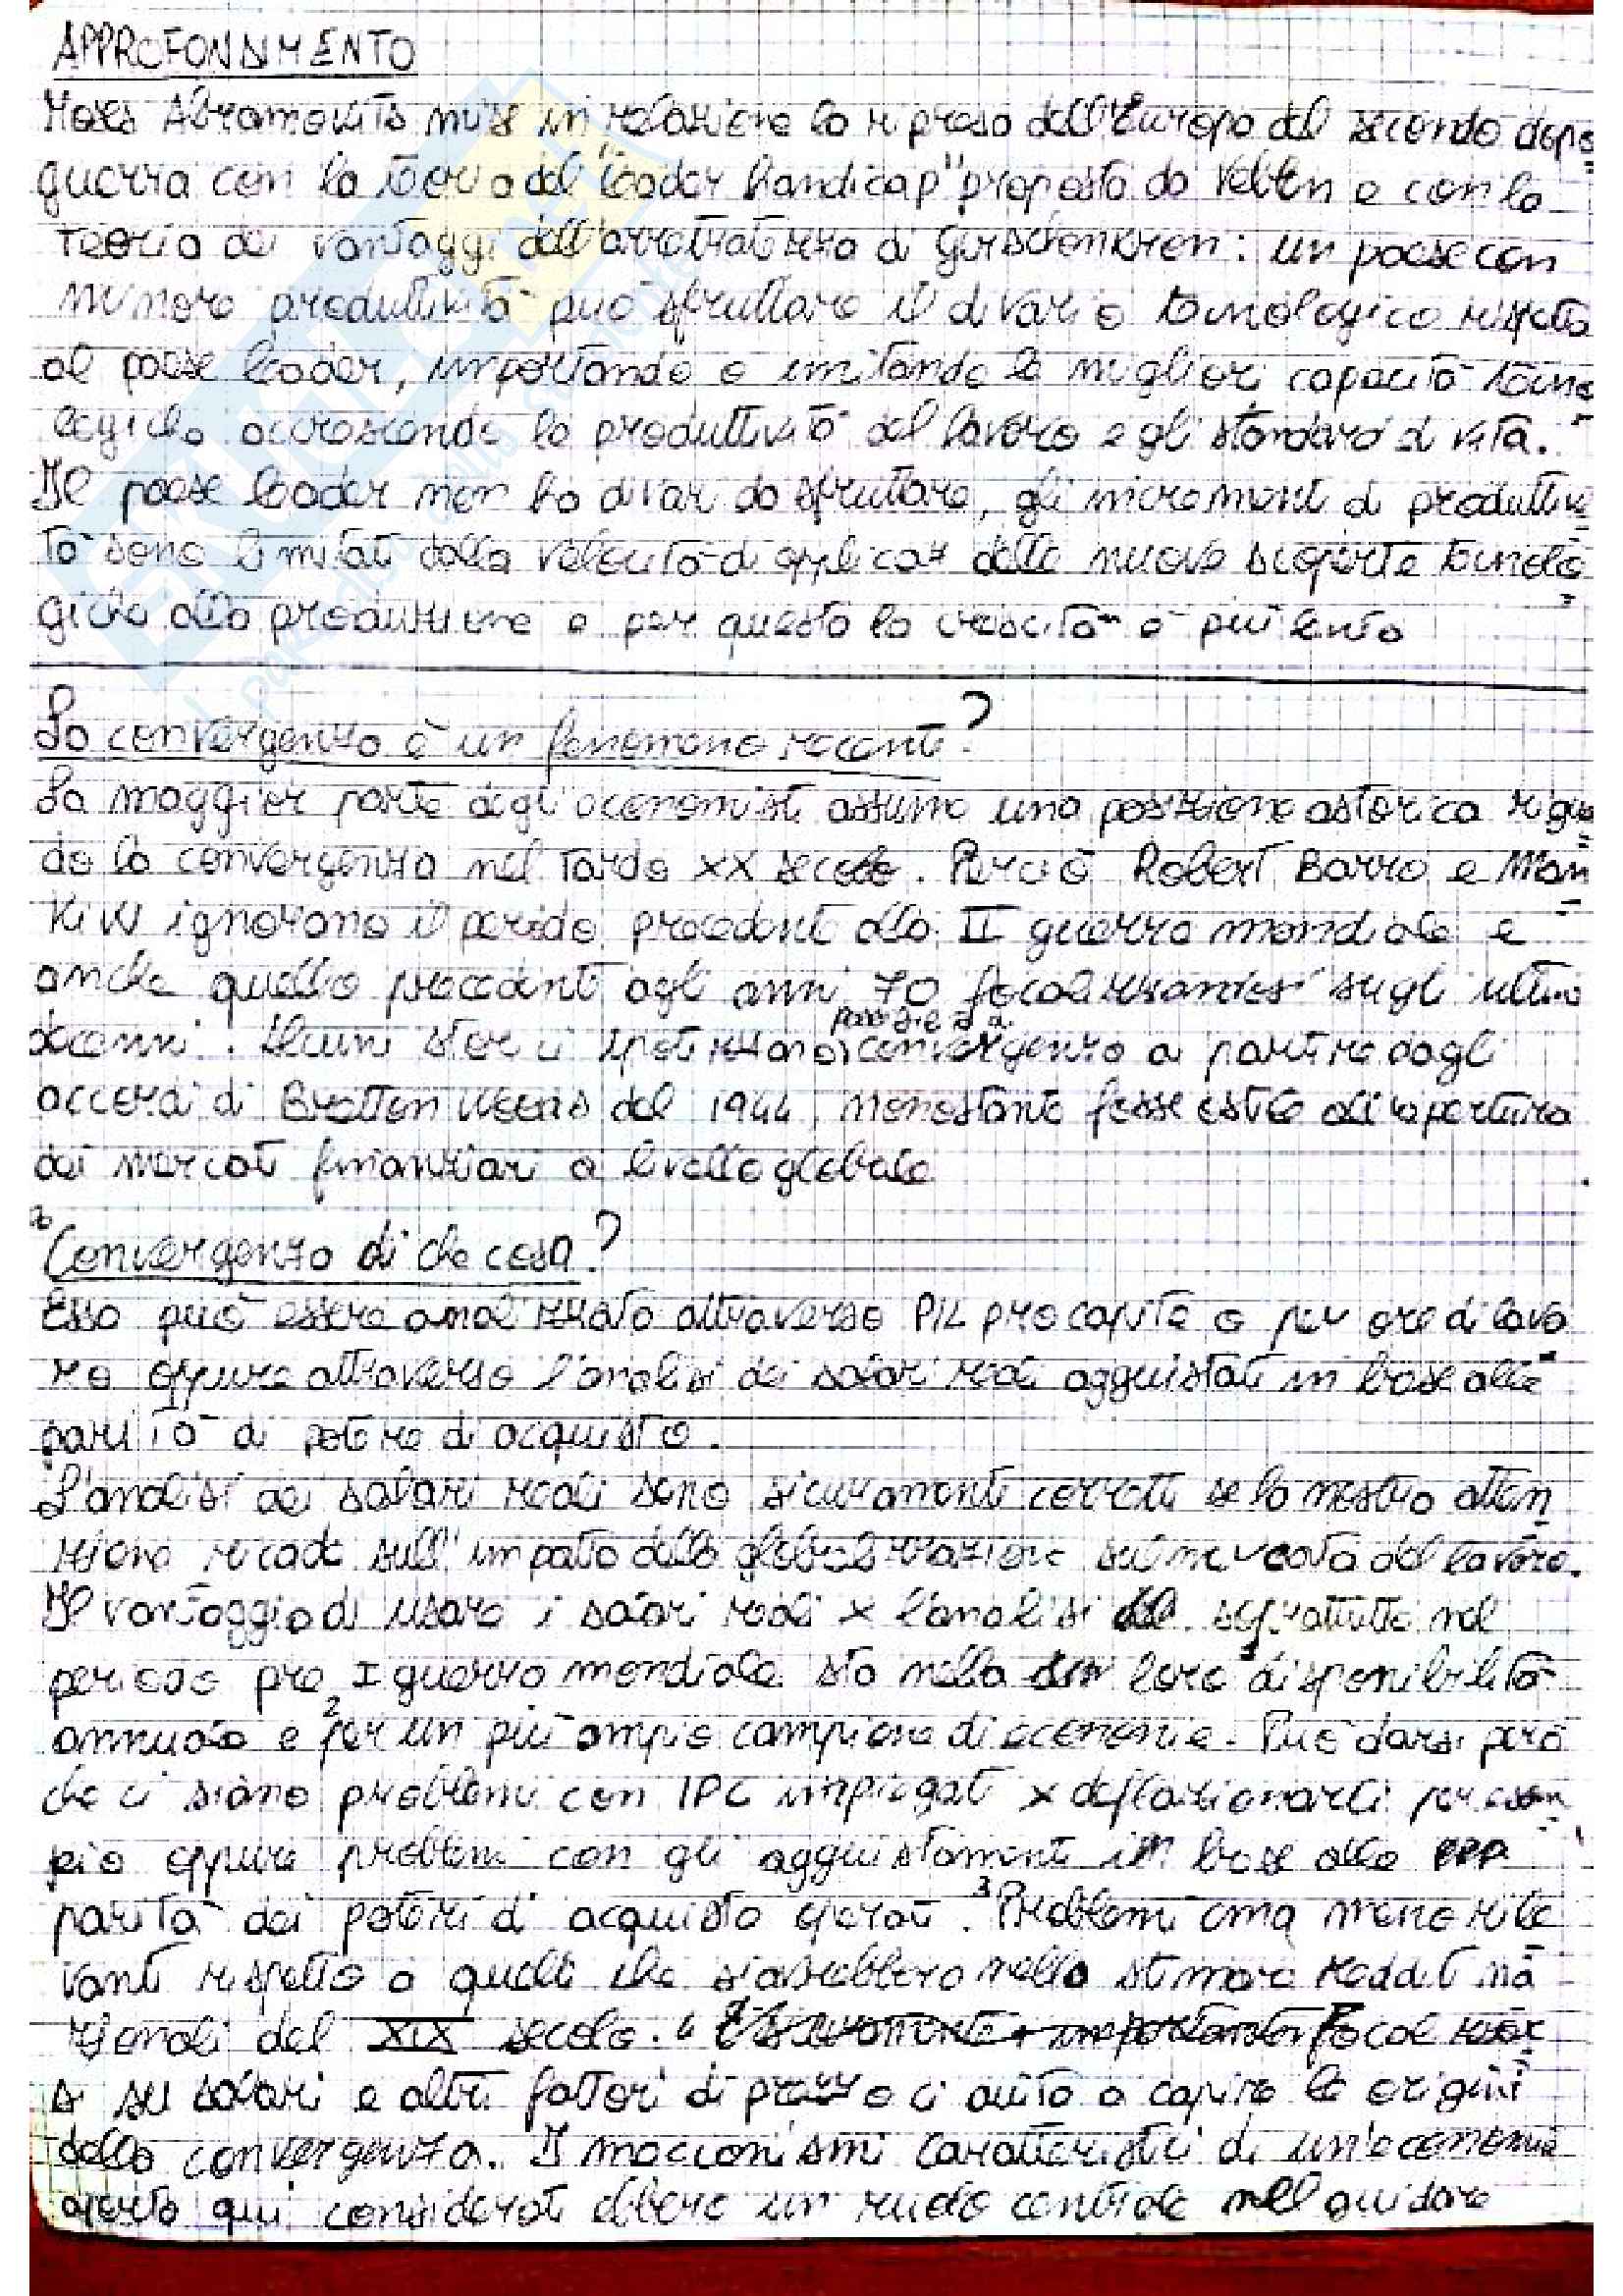 APPROFONDIMENTO
Moses Abramovitz mise in relazione la ripresa dell'Europa del secondo dopo
guerra con la teoria del "leader handicap" proposta da Veblen e con la
teoria dei vantaggi dell'arretratezza di Gerschenkron: un paese con
minore produttività può sfruttare il divario tecnologico rispetto
al paese leader, importando e imitando le migliori capacità tecno
logiche accrescendo la produttività del lavoro e gli standard di vita.
Il paese leader non ha divari da sfruttare, gli incrementi di produttivi
tà sono limitati dalla velocità di applicaz delle nuove scoperte tecnolo
giche alla produzione e per questo la crescita è più lenta
La convergenza è un fenomeno recente?
La maggior parte degli economisti assume una posizione astorica rigua
do la convergenza nel tardo XX secolo. Perciò Robert Barro e Man
kiw ignorano il periodo precedente alla II guerra mondiale e
anche quello precedente agli anni 70 focalizzandosi sugli ultimi
decenni. Alcuni storici ipotizzano convergenza a partire dagli
accordi di Bretton Woods del 1944, nonostante fosse ostile all'apertura
dei mercati finanziari a livello globale
Convergenza di che cosa?
Essa può essere analizzata attraverso PIL pro capite o per ore di lavo
ro oppure attraverso l'analisi dei salari reali aggiustati in base alla
parità di potere di acquisto.
L'analisi dei salari reali sono sicuramente corrette se la nostra atten
zione ricade sull'impatto della globalizzazione sul mercato del lavoro.
Il vantaggio di usare i salari reali x l'analisi soprattutto nel
periodo pre I guerra mondiale sta nella loro ¹disponibilità
annuale e ²per un più ampio campione di economie. Può darsi però
che ci siano problemi con IPC impiegati x deflazionarli per esem
pio oppure problemi con gli aggiustamenti in base alla
parità dei poteri d'acquisto operati. ³Problemi cmq meno rile
vanti rispetto a quelli che si avrebbero nello stimare redditi na
zionali del XIX secolo. ⁴ Focalizzar
si su salari e altri fattori di prezzo ci aiuta a capire le origini
della convergenza. I meccanismi caratteristici di un'economia
aperta qui considerati ebbero un ruolo centrale nel guidare